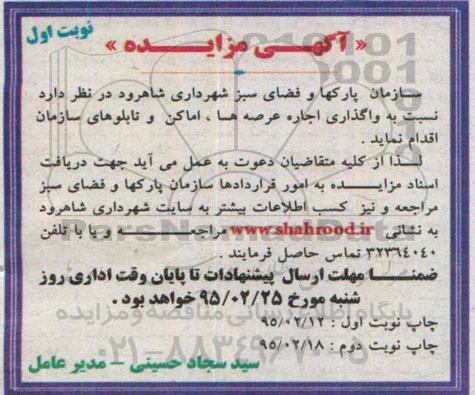 نوبت اول
« آگهی مزایده »
سازمان پارکها و فضای سبز شهرداری شاهرود در نظر دارد
نسبت به واگذاری اجاره عرصه ها ، اماکن و تابلوهای سازمان
اقدام نماید .
لذا از کلیه متقاضیان دعوت به عمل می آید جهت دریافت
اسناد مزایده به امور قراردادها سازمان پارکها و فضای سبز
مراجعه و نیز کسب اطلاعات بیشتر به سایت شهرداری شاهرود
به نشانی www.shahrood.ir مراجعه و یا با تلفن
۳۲۳۶۴۰۴۰ تماس حاصل فرمایند .
ضمنا مهلت ارسال پیشنهادات تا پایان وقت اداری روز
شنبه مورخ ۹۵/۰۲/۲۵ خواهد بود .
چاپ نوبت اول : ۹۵/۰۲/۱۲
چاپ نوبت دوم : ۹۵/۰۲/۱۸
سید سجاد حسینی – مدیر عامل
ParsNamadData
پایگاه اطلاع رسانی مناقصه و مزایده
۰۲۱-۸۸۳۴۹۶۷۰-۵